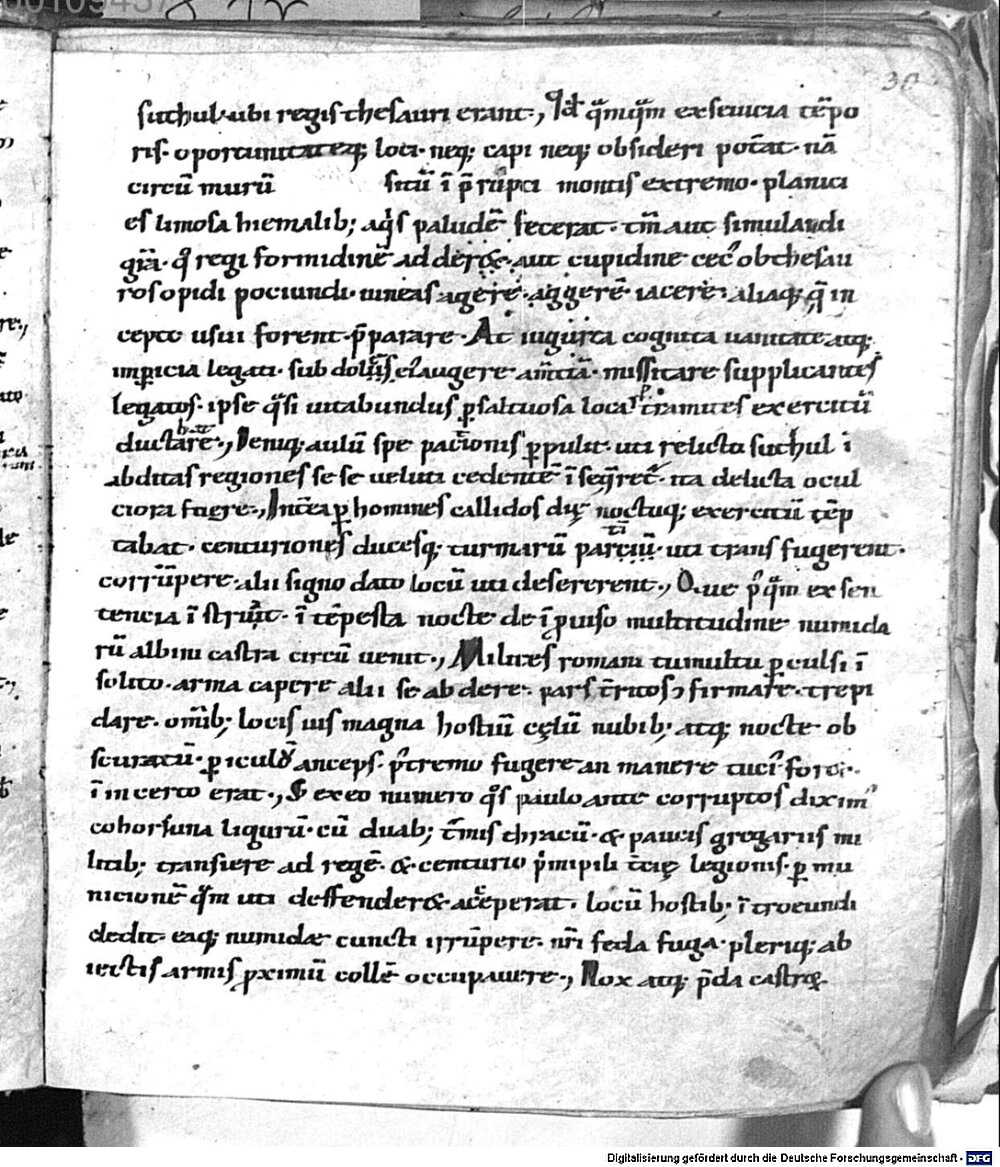 30
suthul· ubi regis thesauri erant·, Id q̄mq̄m exseuicia tēpo
ris· oportunitateq; loci· neq; capi neq; obsideri poťat· nā
circū murū sitū ī p̄rupti montis extremo· planici
es limosa hiemalib; aq̇s paludē fecerat· tm̄ aut simulandi
gr̄a· q̊ regi formidinē adder&· aut cupidine cec᷒ ob thesau
ros opidi pociundi· uineas agere· aggerē iacere· aliaq; q̄ in
cepto usui forent p̄parare· At iugurta cognita uanitate atq;
imp̱icia legati· sub dolis ei᷒ augere am̄tiā· missitare supplicantes
legatos· ipse q̄si uitabundus p̱ saltuosa loca tramites exercitū
ductare·, Deniq; aulū spe pactionis p̱pulit· uti relicto suthul ī
abditas regiones sese ueluti cedentē īseq̄ret᷒· ita delicta ocul
ciora fuere·, Int̄ea p̱ homines callidos dię noctuq; exercitū tēp
tabat· centuriones ducesq; turmarū partiū· uti transfugerent·
corrūpere· alii signo dato locū uti desererent·, Que p᷒q̄m ex sen
tencia īstruit· ī tēpesta nocte de īprouiso multitudine numida
rū albini castra circū uenit·, Milites romani tumultu p̱culsi ī
solito· arma capere alii se abdere· pars t̄ritos ↄfirmare· trepi
dare· om̄ib; locis uis magna hostiū cęlū nubib; atq; nocte ob
scuratū· p̱iculū anceps· p᷒tremo fugere an manere tuci᷒ foret·
īn certo erat·, S& ex eo numero q̊s paulo ante corruptos dixim᷒
cohors una ligurū· cū duab; t̄mis thracū· & paucis gregariis mi
litib; transiere ad regē· & centurio p̄mipili t̄cię legionis· p̱ mu
nicionē q̄m uti deffender& acceperat· locū hostib; ītroeundi
dedit· eaq; numidæ cuncti irrūpere· nr̄i feda fuga· pleriq; ab
iectis armis p̱ximū collē occupauere·, Nox atq; p̄da castroꝝ
Digitalisierung gefördert durch die Deutsche Forschungsgemeinschaft - DFG